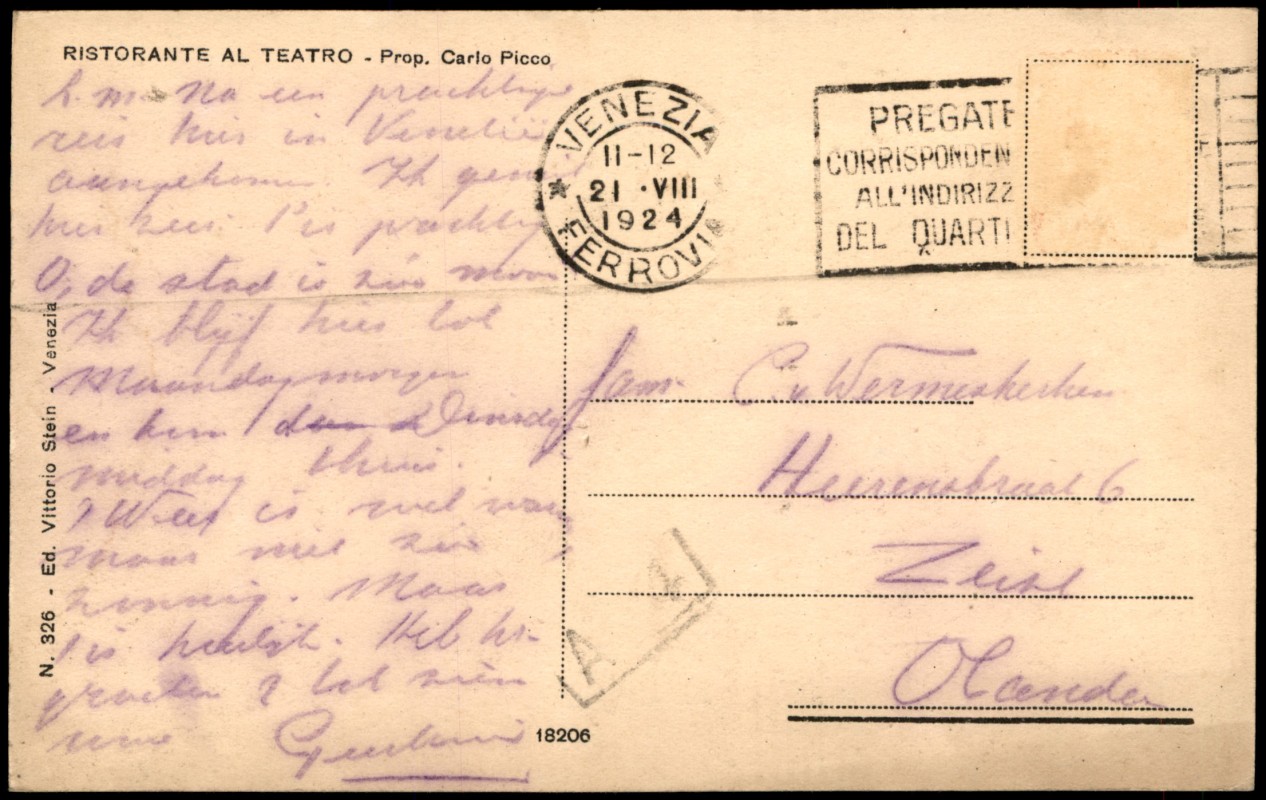 RISTORANTE AL TEATRO - Prop. Carlo Picco
L. m. Na een prachtige
reis hier in Venetië
aangekomen. Ik geniet
hier zeer. 't is prachtig
O, de stad is zóó mooi
Ik blijf hier tot
Maandagmorgen
en ben Dinsdag
middag thuis.
't Weer is wel warm
maar niet zeer
zonnig. Maar
't is heerlijk. Hel. be-
groeten & tot ziens
VENEZIA
11-12
21 · VIII
1924
FERROVIA
PREGATE
CORRISPONDEN
ALL'INDIRIZZ
DEL QUARTI
fam. C. v. Wermeskerken
Heerenstraat 6
Zeist
Olanda
A 4
N. 326 - Ed. Vittorio Stein - Venezia
18206